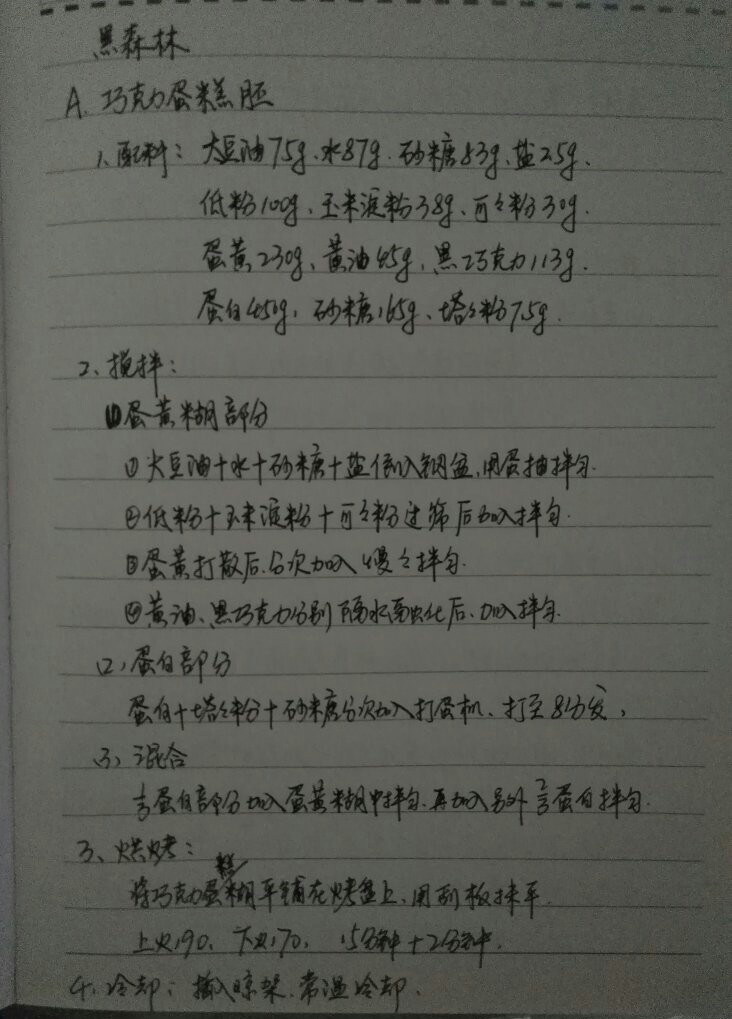 黑森林
A. 巧克力蛋糕胚
1、配料：大豆油75g、水87g、砂糖83g、盐2.5g、
低粉100g、玉米淀粉38g、可々粉30g、
蛋黄230g、黄油45g、黑巧克力113g、
蛋白450g、砂糖165g、塔々粉7.5g.
2、搅拌：
(1)蛋黄糊部分
①大豆油+水+砂糖+盐倒入钢盆,用蛋抽拌匀.
②低粉+玉米淀粉+可々粉过筛后加入拌匀.
③蛋黄打散后、分次加入慢々拌匀.
④黄油、黑巧克力分别隔水融化后、加入拌匀.
(2)、蛋白部分
蛋白+塔々粉+砂糖分次加入打蛋机、打至8分发、
(3)、混合
蛋白部分加入蛋黄糊中拌匀、再加入另外蛋白拌匀.
3、烘烤：
将巧克力蛋糕糊平铺在烤盘上、用刮板抹平.
上火190、下火170、15分钟+2分钟.
4、冷却：搬入晾架、常温冷却.